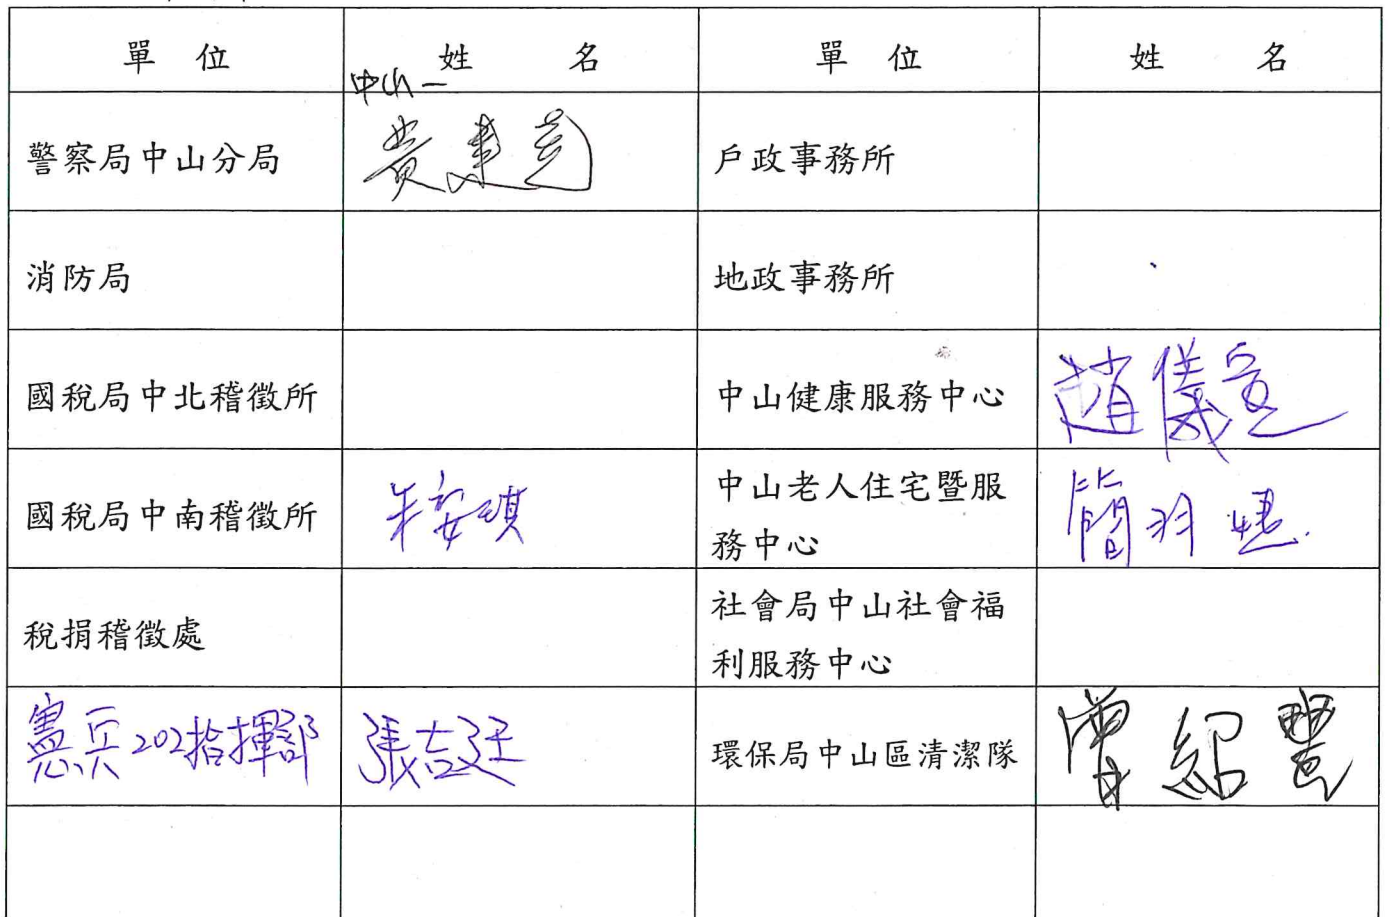 單 位 姓 名 單 位 姓 名
中山一
警察局中山分局 黃 戶政事務所
消防局 地政事務所
國稅局中北稽徵所 中山健康服務中心 趙儀
國稅局中南稽徵所 朱安琪 中山老人住宅暨服
務中心 簡羽
稅捐稽徵處 社會局中山社會福
利服務中心
憲兵202指揮部 張吉廷 環保局中山區清潔隊 曾紹豐